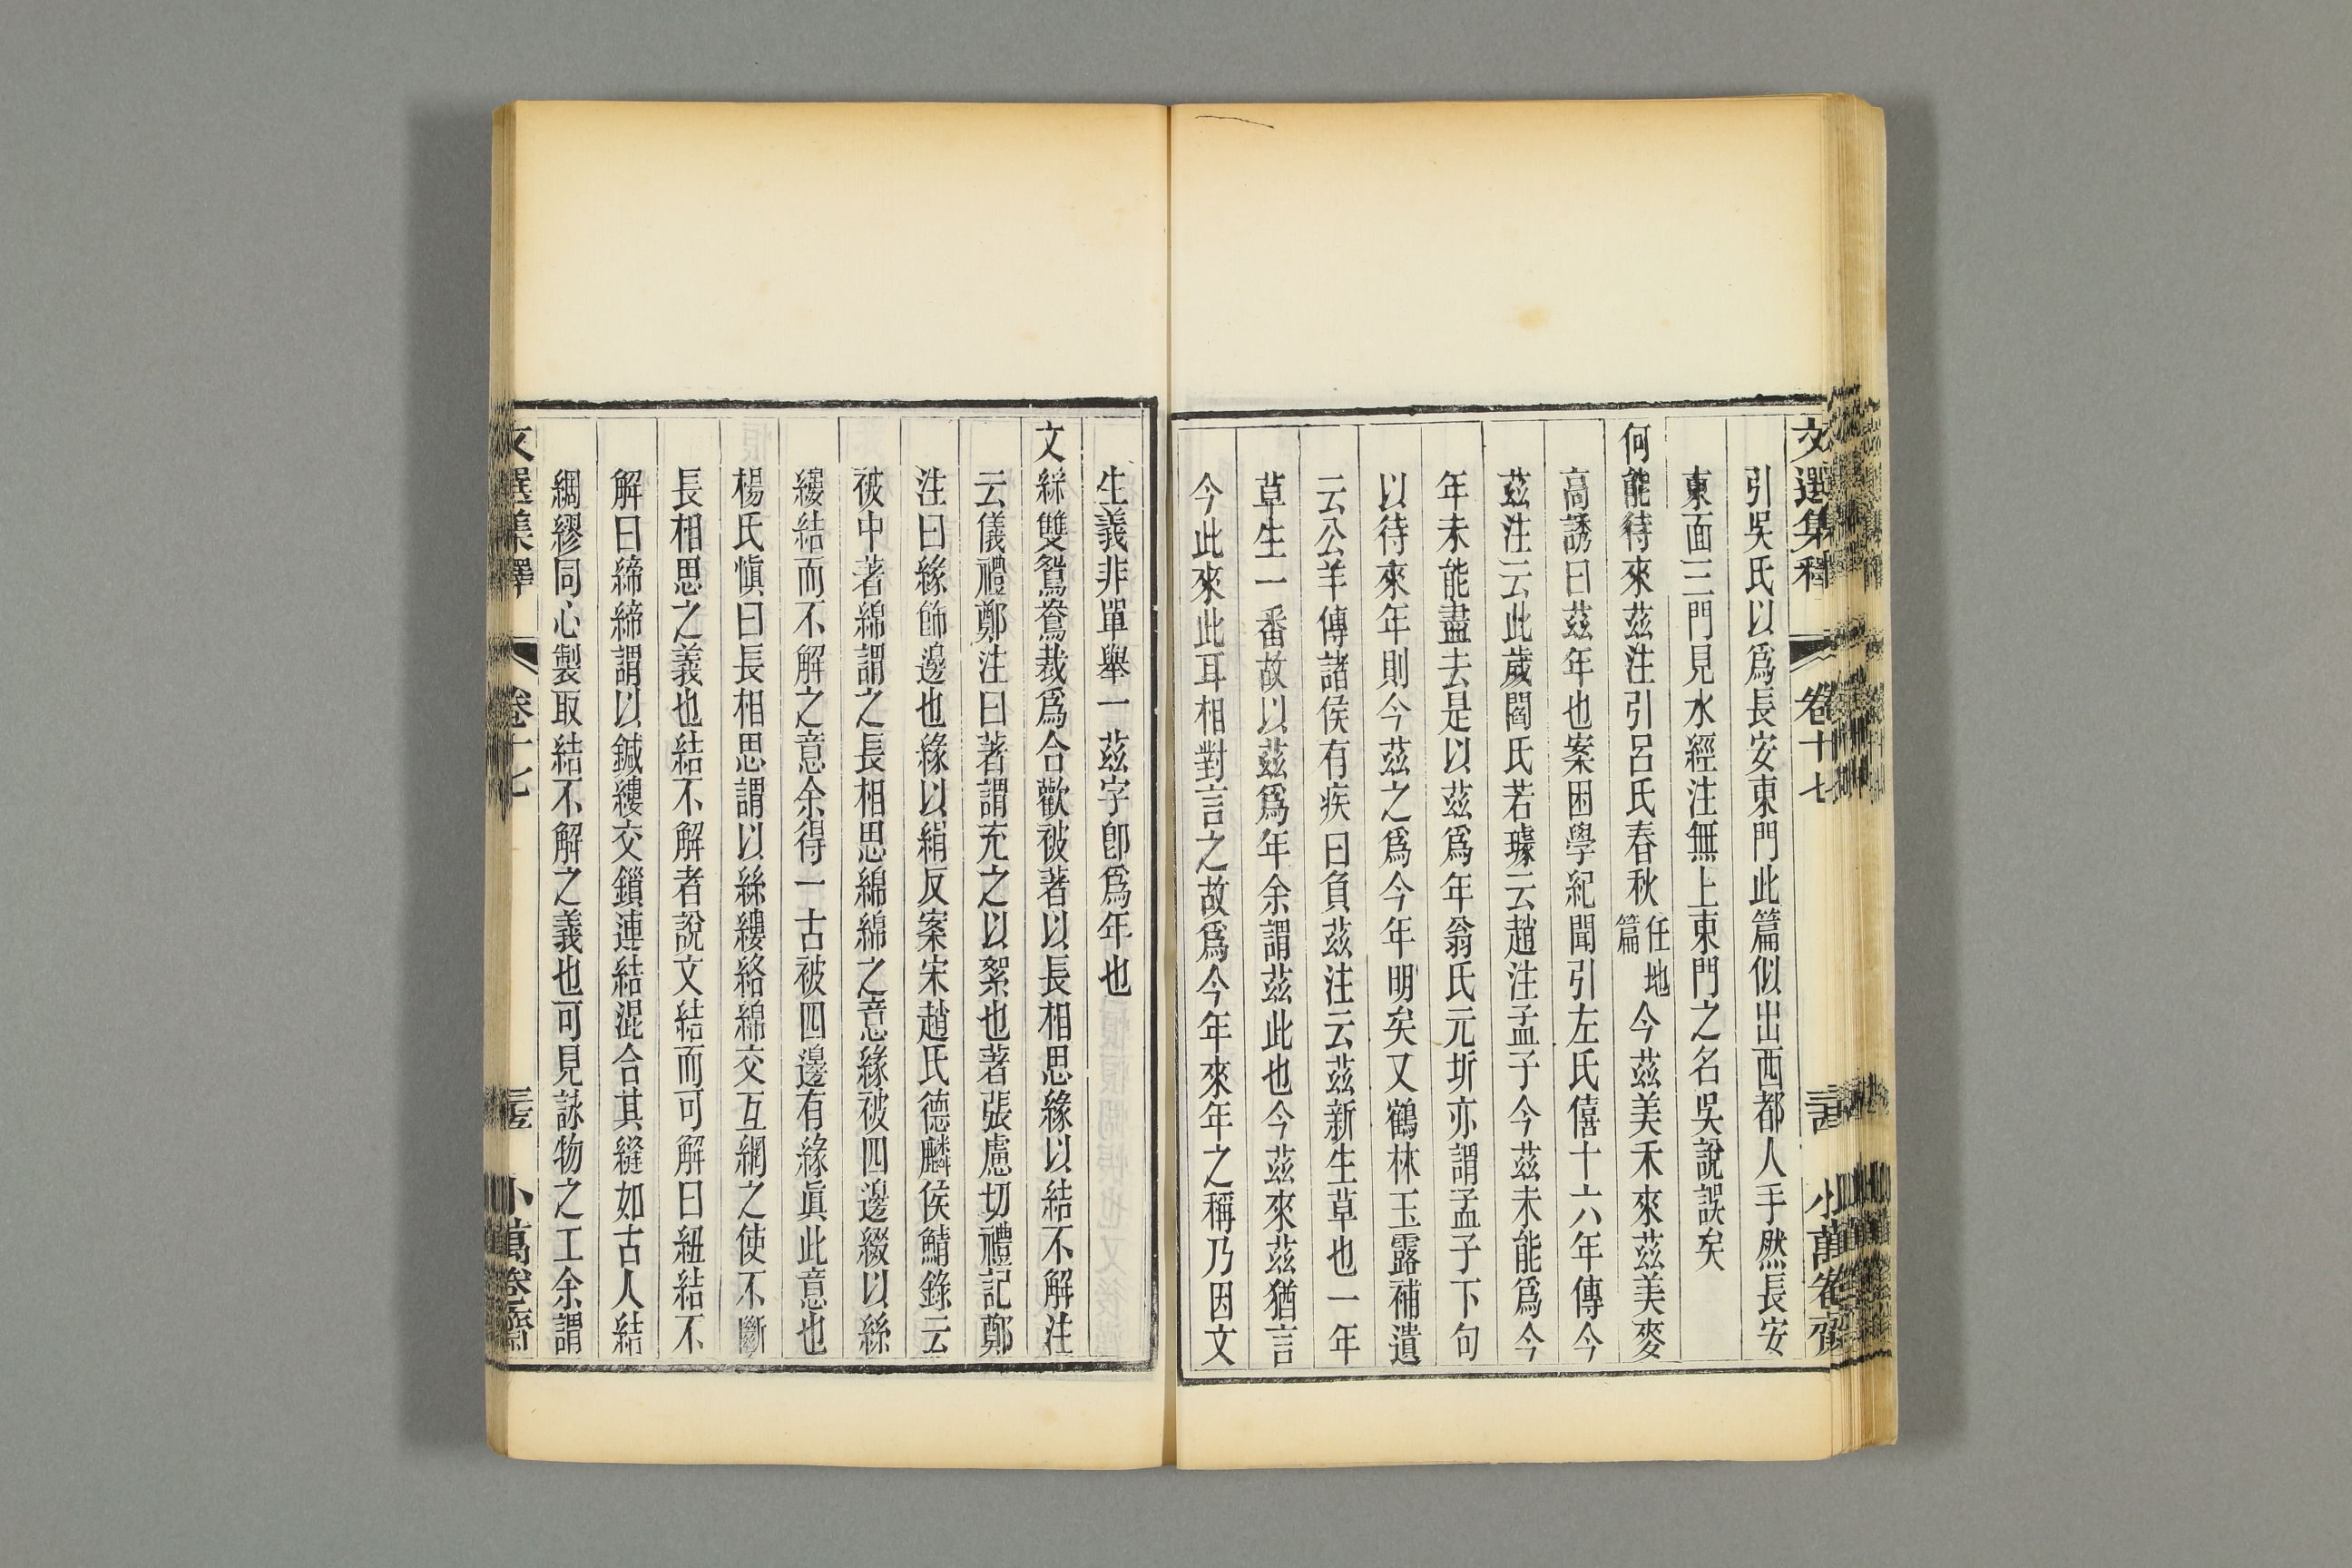 文選集釋 卷十七 三古 小萬卷齋
引吳氏以爲長安東門此篇似出西都人手然長安
東面三門見水經注無上東門之名吳說誤矣
何能待來茲注引呂氏春秋任地篇今茲美禾來茲美麥
高誘曰茲年也案困學紀聞引左氏僖十六年傳今
茲注云此歲閻氏若璩云趙注孟子今茲未能爲今
年未能盡去是以茲爲年翁氏元圻亦謂孟子下句
以待來年則今茲之爲今年明矣又鶴林玉露補遺
云公羊傳諸侯有疾曰負茲注云茲新生草也一年
草生一番故以茲爲年余謂茲此也今茲來茲猶言
今此來此耳相對言之故爲今年來年之稱乃因文
生義非單舉一茲字卽爲年也
文綵雙鴛鴦裁爲合歡被著以長相思緣以結不解注
云儀禮鄭注曰著謂充之以絮也著張慮切禮記鄭
注曰緣飾邊也緣以絹反案宋趙氏德麟侯鯖錄云
被中著綿謂之長相思綿綿之意緣被四邊綴以絲
縷結而不解之意余得一古被四邊有緣眞此意也
楊氏愼曰長相思謂以絲縷絡綿交互網之使不斷
長相思之義也結不解者說文結而可解曰紐結不
解曰締締謂以鍼縷交鎖連結混合其縫如古人結
綢繆同心製取結不解之義也可見詠物之工余謂
文選集釋 卷十七 小萬卷齋